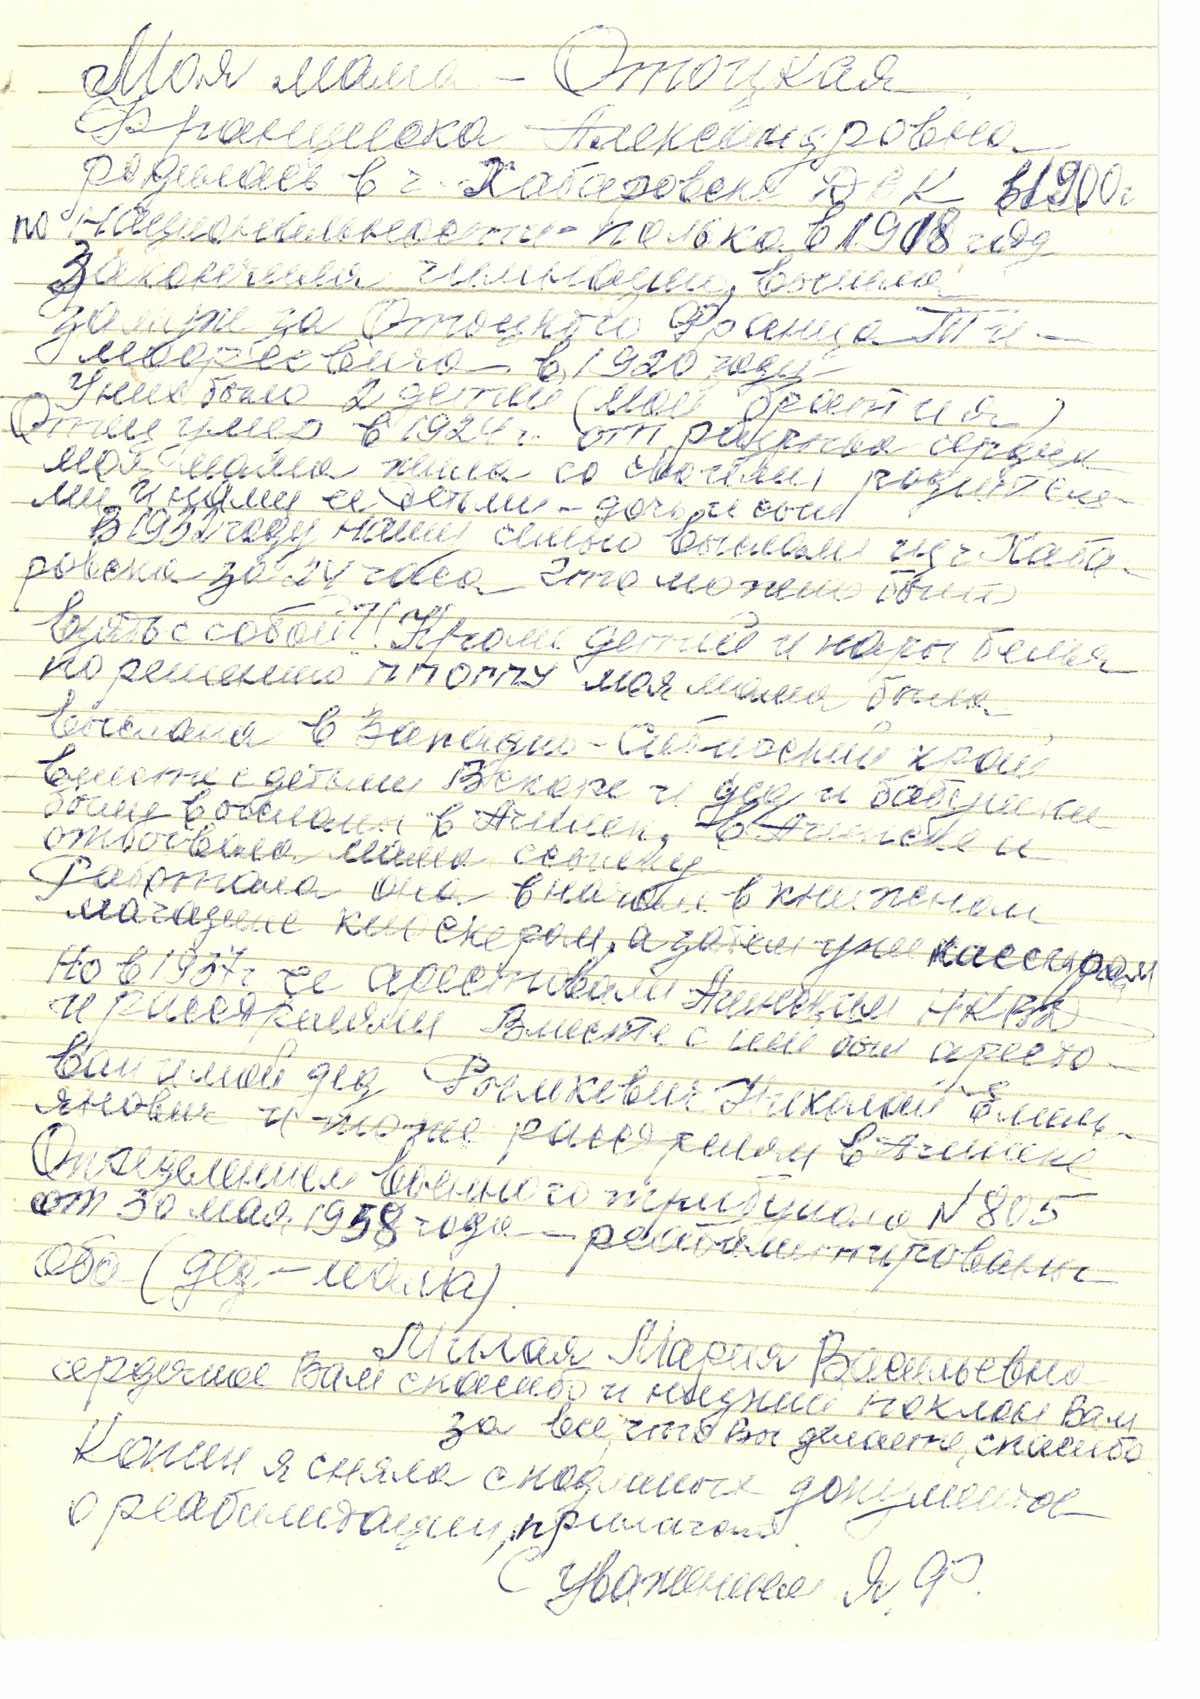 Моя мама – Отоцкая
Франциска Александровна
родилась в г. Хабаровске ДВК в 1900 г
по национальности – полька в 1918 год
Закончила гимназию, вышла
замуж за Отоцкого Франца Ти-
мофеевича в 1920 году
У них было 2 детей (мой брат и я)
Отец умер в 1924 г. от разрыва сердца
моя мама жила со своими родителя-
ми и нами ее детьми – дочь и сын
В 1932 году нашу семью выслали из г. Хаба-
ровска за 24 часа Что можно было
взять с собой?! Кроме детей и пары белья
по решению ППОГПУ моя мама была
выслана в Западно-Сибирский край
вместе с детьми Вскоре и дед и бабушка
были высланы в Ачинск, в Ачинске и
отбывала мама ссылку
Работала она вначале в книжном
магазине киоскером, а затем уже кассиром
Но в 1937 г ее арестовали Ачинским НКВД
и расстреляли Вместе с ней был аресто-
ван и мой дед Рымкевич Николай Емель-
янович и тоже расстрелян в Ачинске
Определением военного трибунала N 805
от 30 мая 1958 года – реабилитированы
оба (дед – мама).
Милая Мария Васильевна
сердечное Вам спасибо и низкий поклон Вам
за все, что Вы делаете, спасибо
Копии я сняла с подлинных документов
о реабилитации, прилагаю
С уважением Я. Ф.